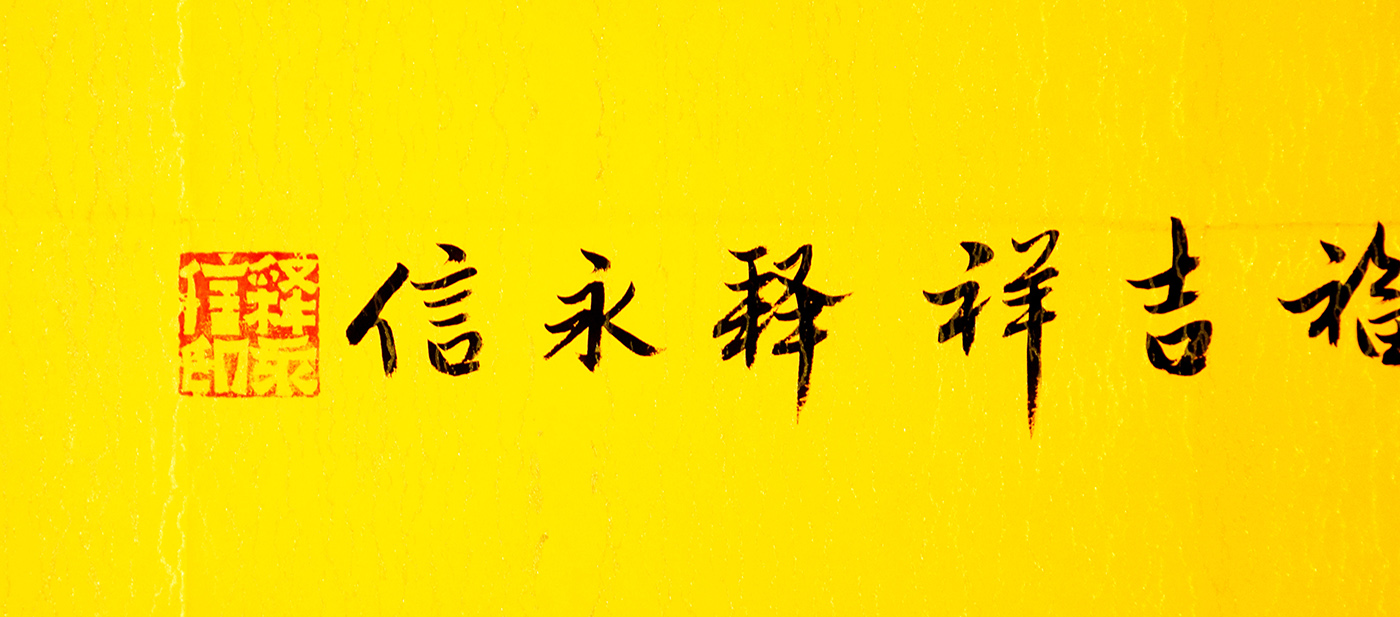 福吉祥释永信
释永信印